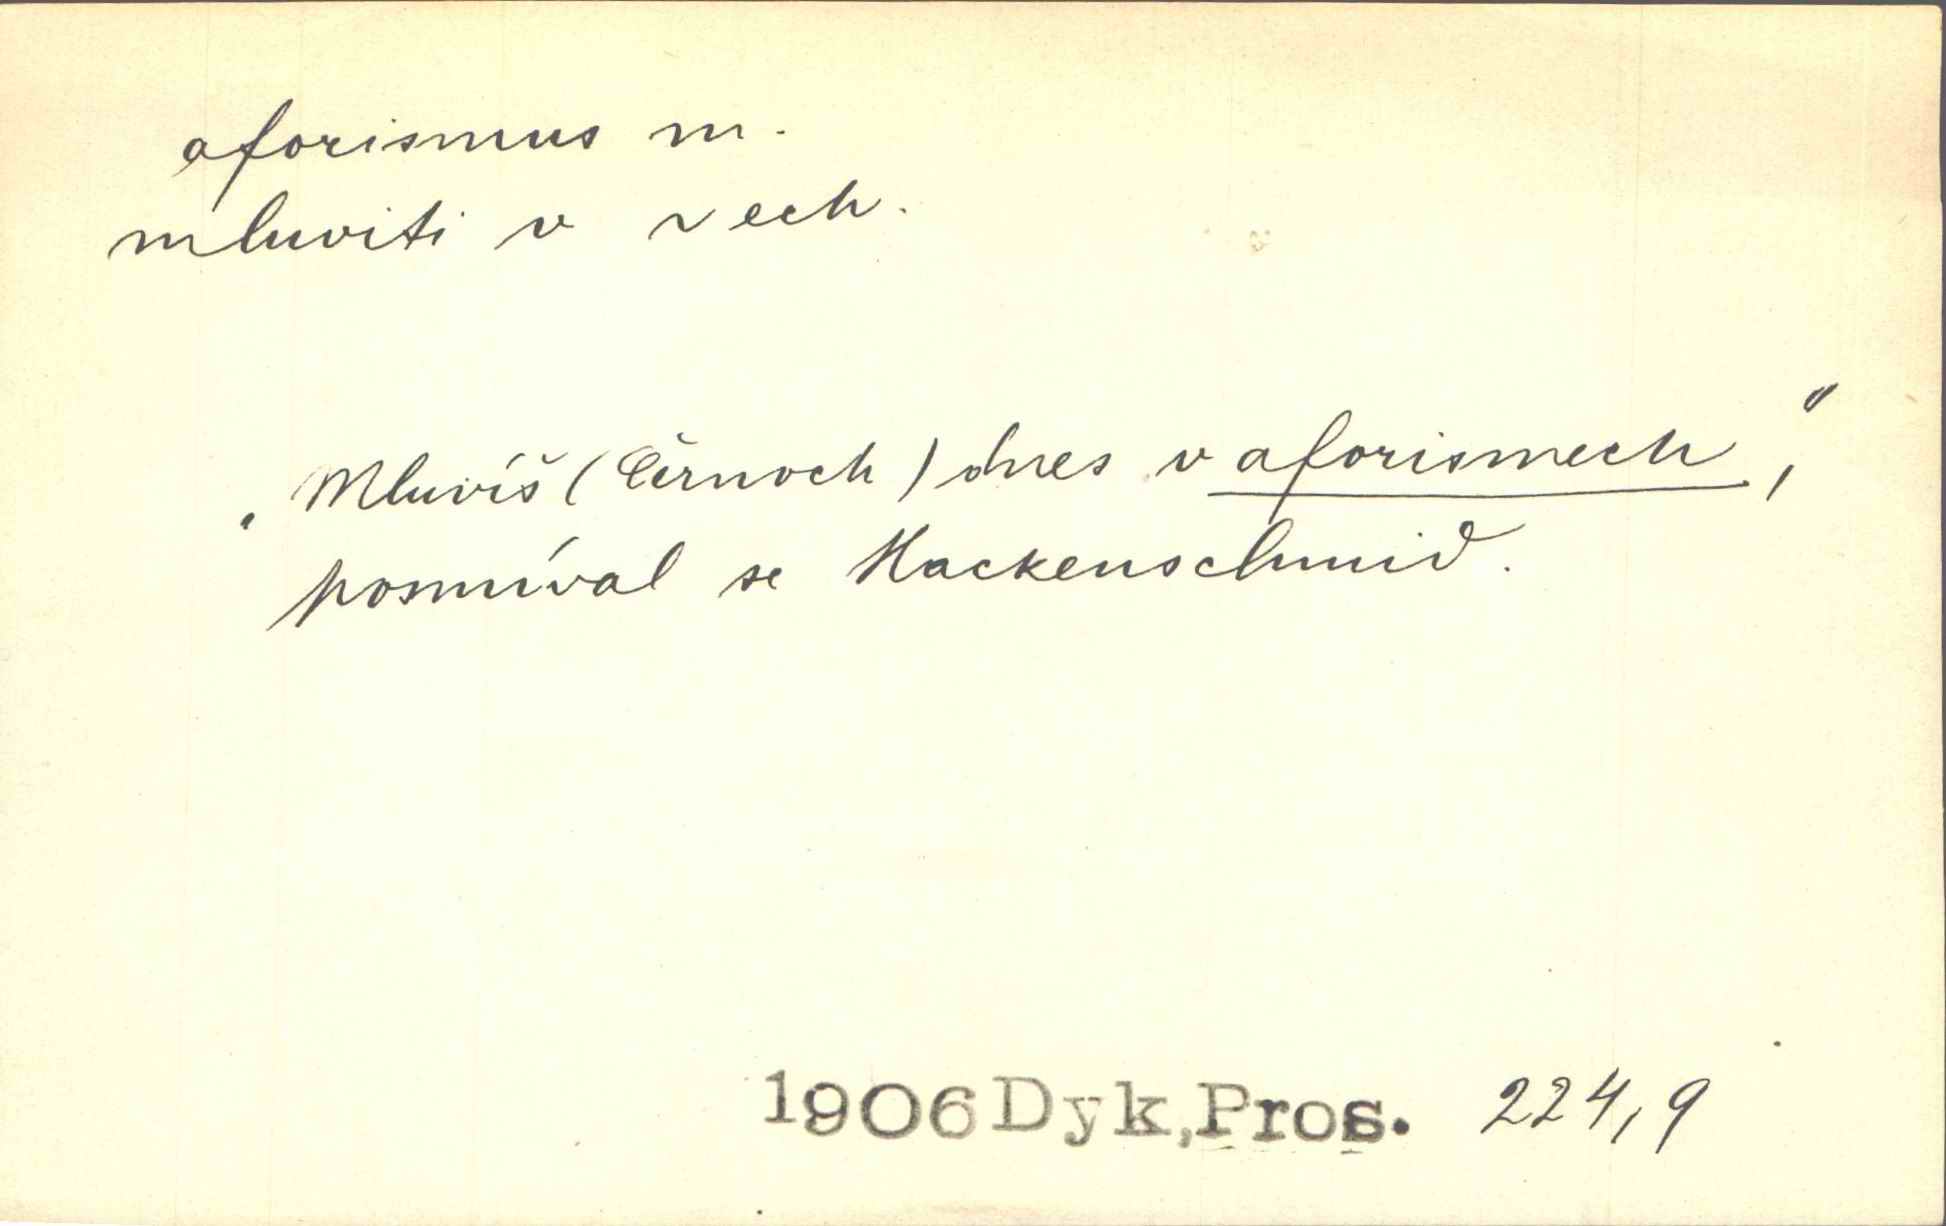 aforismus m.
mluviti v ~ech.
„Mluvíš (Černoch) dnes v aforismech,“
posmíval se Hackenschmid.
1906 Dyk, Pros. 224,9